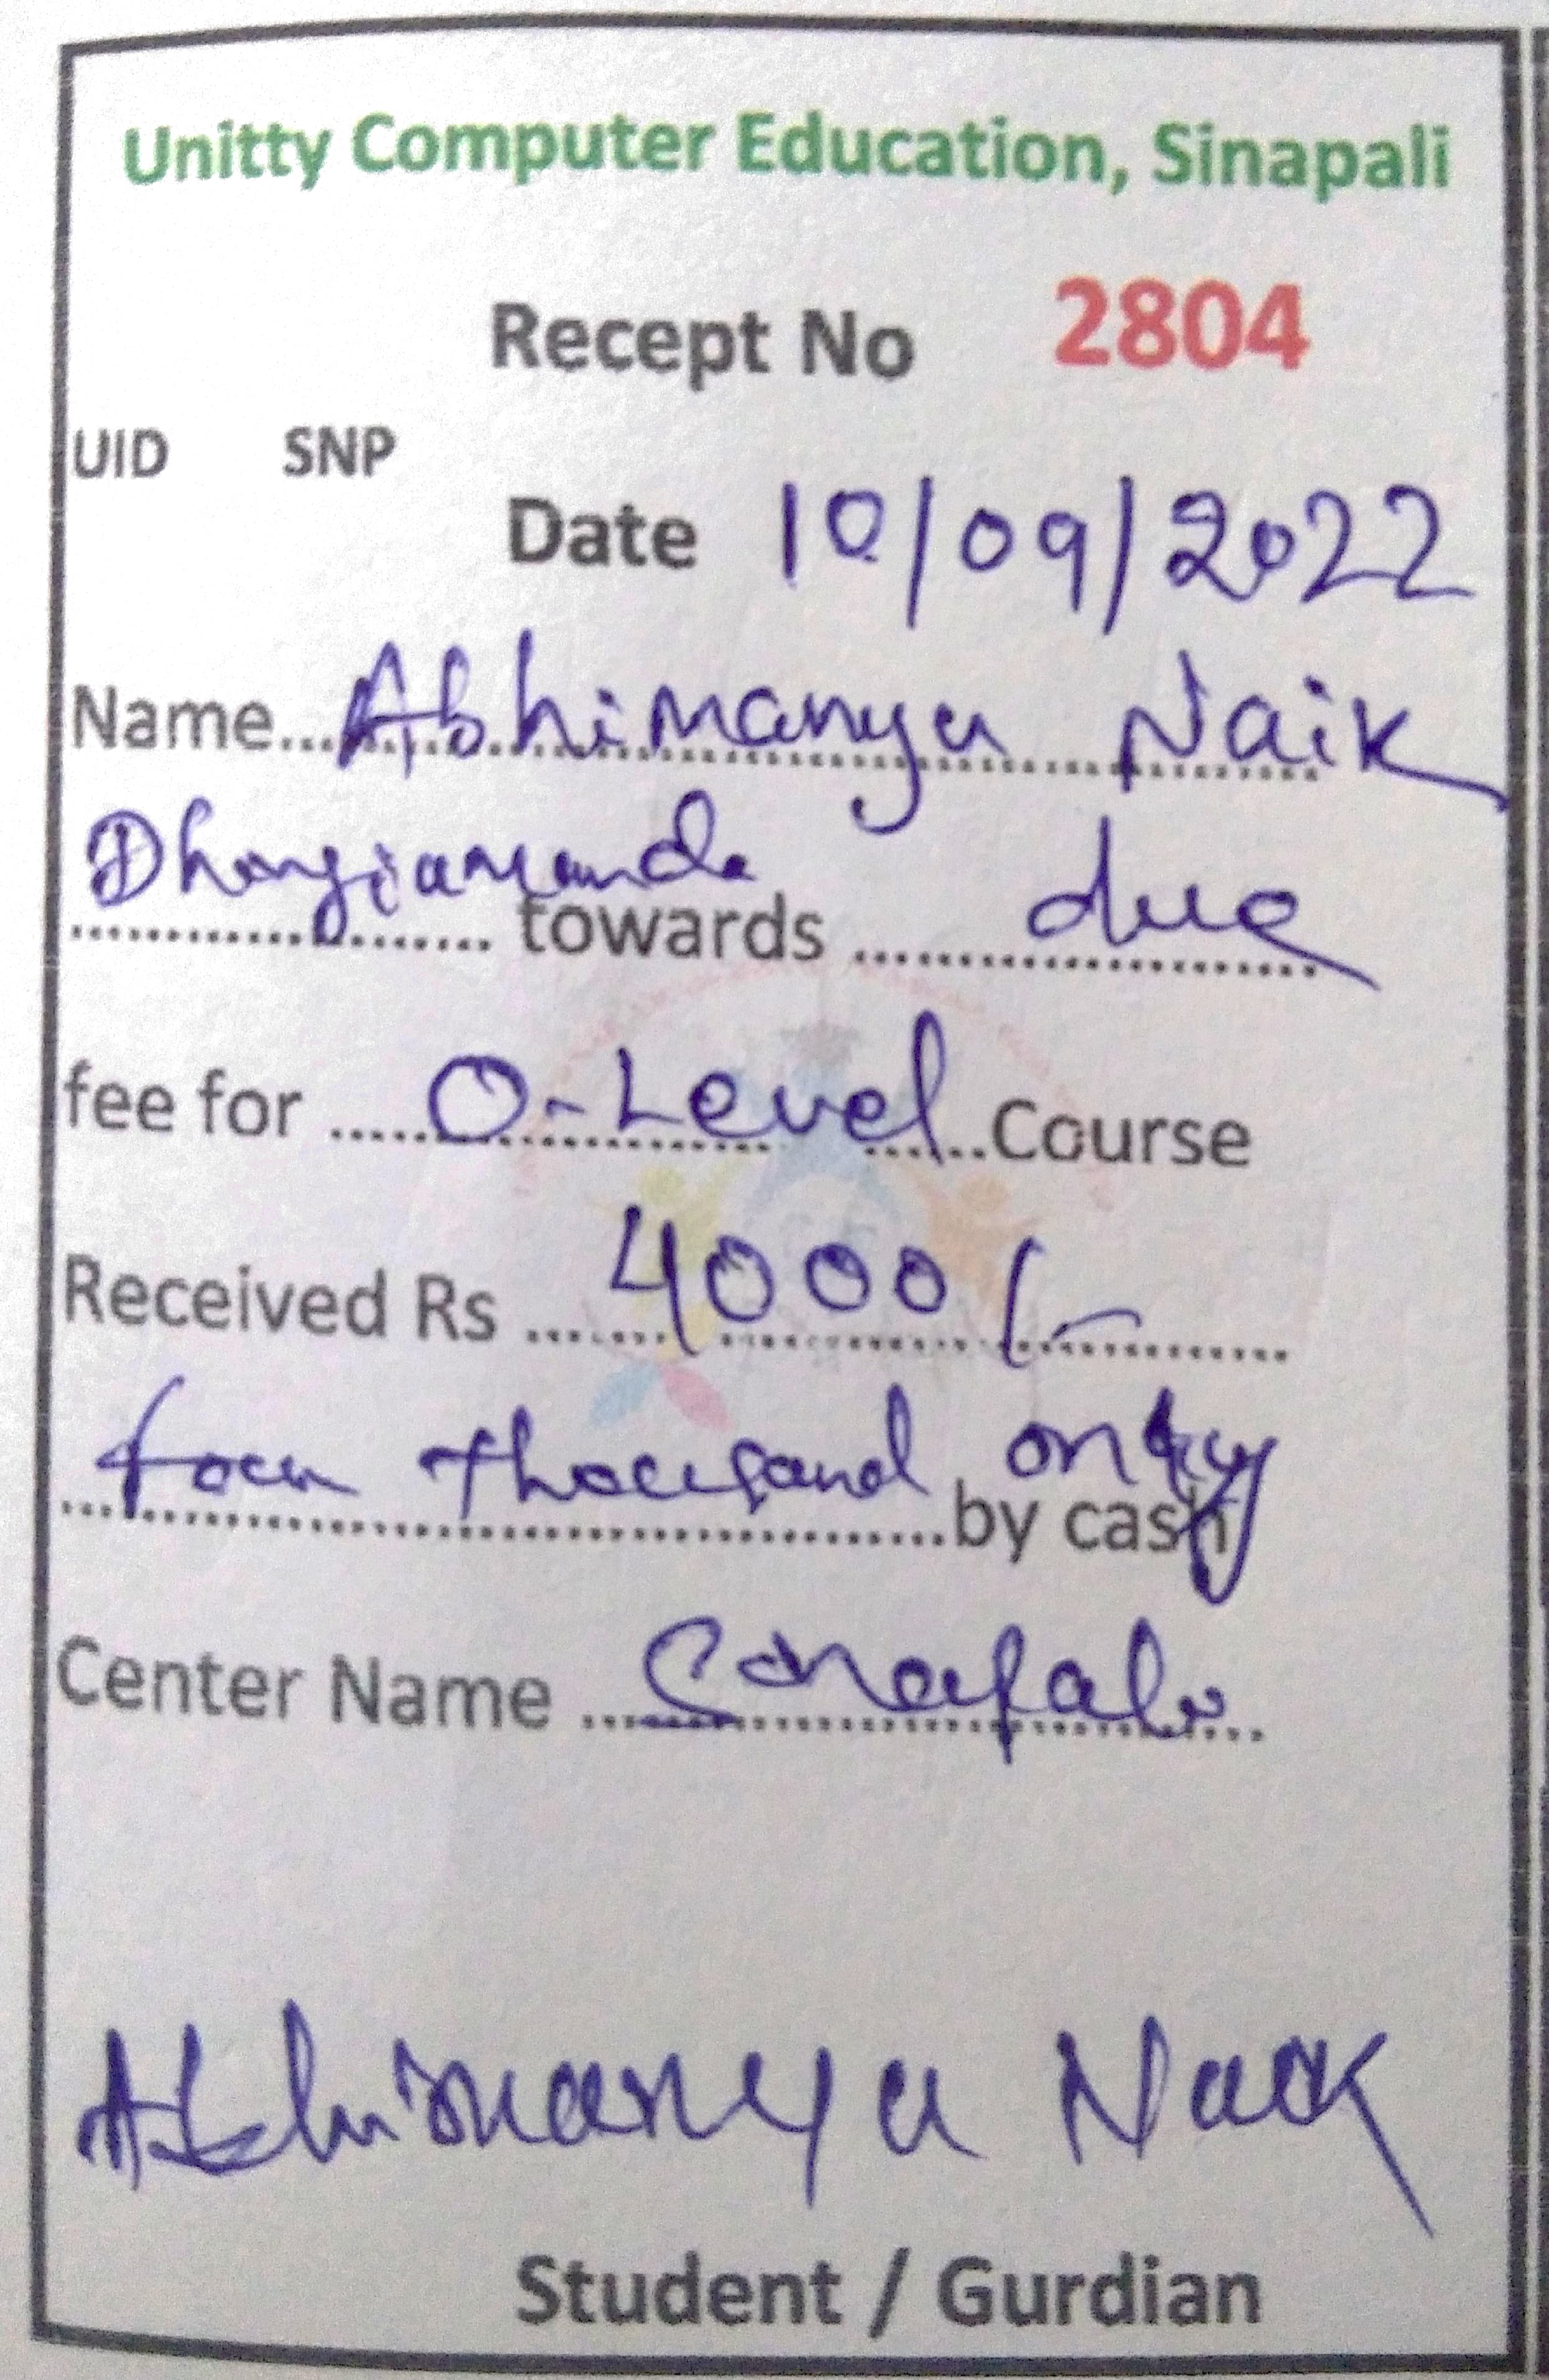 Unitty Computer Education, Sinapali
Recept No 2804
UID SNP
Date 10/09/2022
Name Abhimanyu Naik
Dhangiamunda towards due
fee for O-Level Course
Received Rs 4000/-
four thousand only by cash
Center Name Sinapali
Abhimanyu Naik
Student / Gurdian